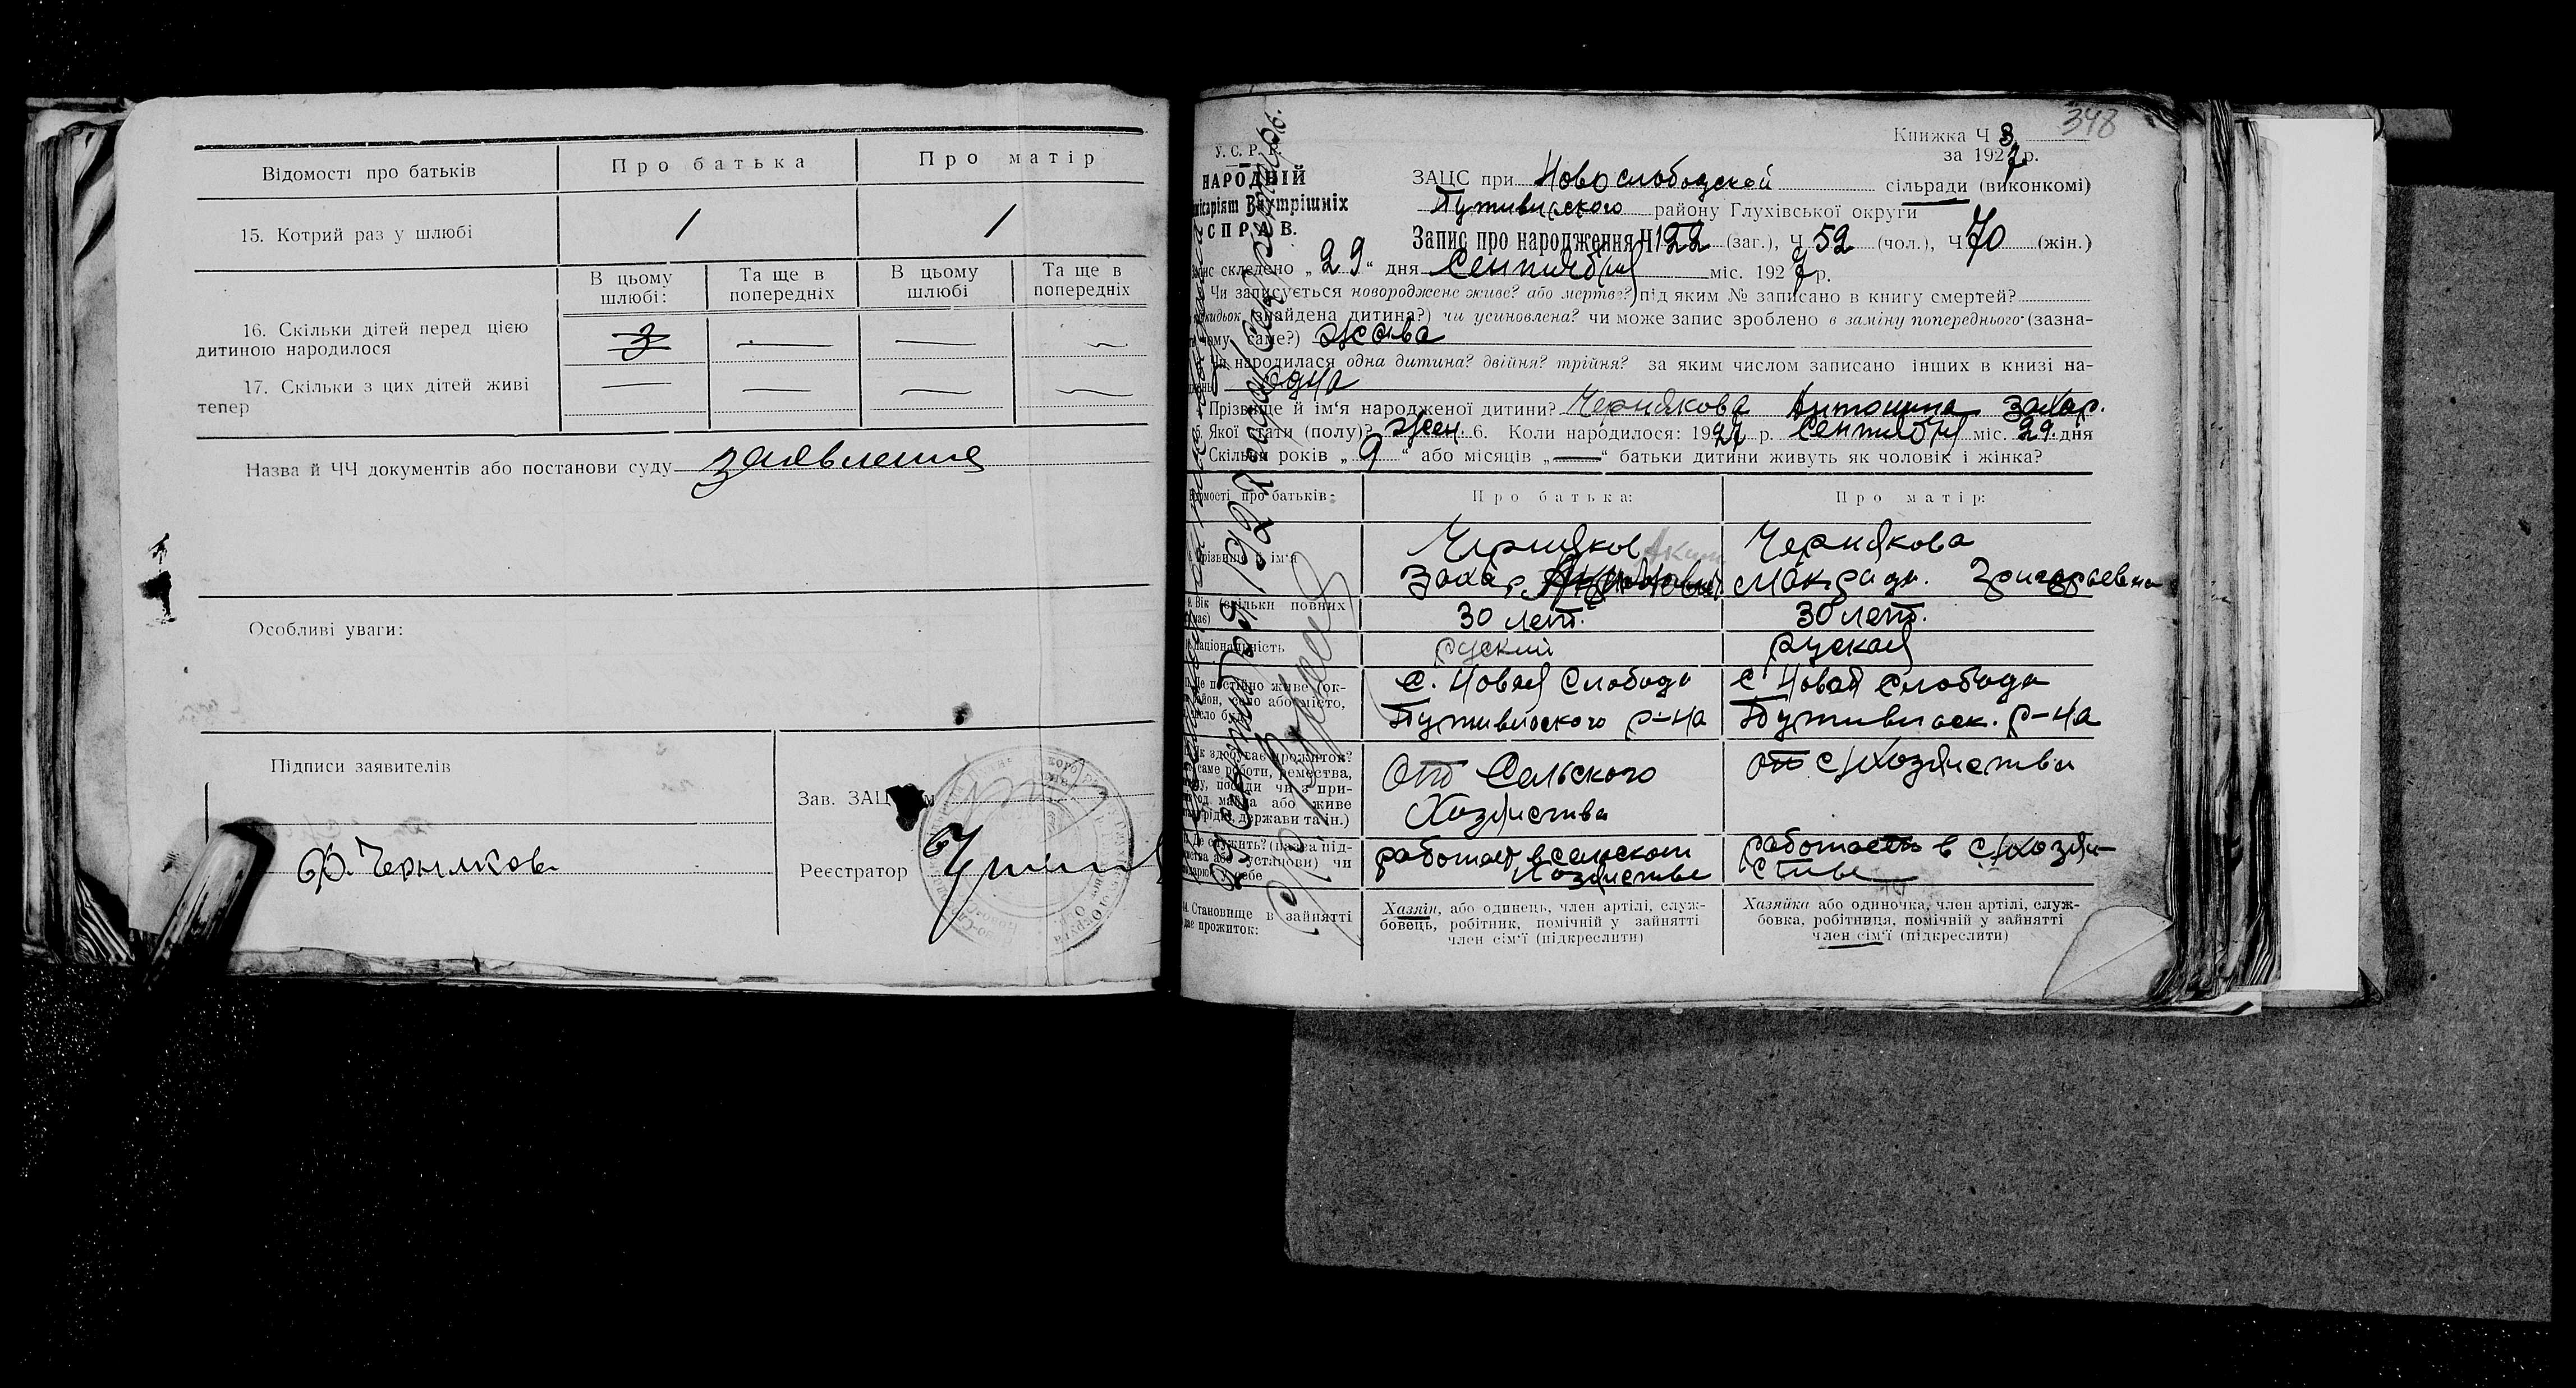 Відомості про батьків
Про батька
Про матір
15. Котрий раз у шлюбі
/
/
В цьому шлюбі:
Та ще в попередніх
В цьому шлюбі
Та ще в попередніх
16. Скільки дітей перед цією
дитиною народилося
3
—
—
—
17. Скільки з цих дітей живі
тепер
—
—
—
—
Назва й ЧЧ документів або постанови суду заявление
Особливі уваги:
Підписи заявителів
Зав. ЗАЦ
Ф. Черняков
Реєстратор
348
Книжка Ч 3
за 1927 р.
У. С. Р. Р.
НАРОДНІЙ
Внутрішніх
СПРАВ.
ЗАЦС при Новослободской сільради (виконкомі)
Путивльского району Глухівської округи
Запис про народження Ч 122 (заг.), Ч 52 (чол.), Ч 70 (жін.)
складено „29“ дня Сентября міс. 1927 р.
Чи записується новороджене живе? або мертве? під яким № записано в книгу смертей?
(знайдена дитина?) чи усиновлена? чи може запис зроблено в заміну попереднього (зазна-
саме?) жива
народилася одна дитина? двійня? трійня? за яким числом записано інших в книзі на-
одна
Прізвище й ім'я народженої дитини? Чернякова Антонина Захар.
Якої стати (полу)? жен. 6. Коли народилося: 1927 р. Сентября міс. 29 дня
Скільки років „9“ або місяців „—“ батьки дитини живуть як чоловік і жінка?
про батьків:
Про батька:
Про матір:
Прізвище й ім'я
Черняков
Захар
Чернякова
Макрида Григорьевна
9. Вік (скільки повних
30 лет.
30 лет.
Національність
руский
руская
Де постійно живе (ок-
район, село або місто,
с. Новая Слобода
Путивльского р-на
с Новая Слобода
Путивльск. р-на
Як здобуває прожиток?
саме роботи, ремества,
посади чи з при-
майна або живе
держави та ін.)
От Сельского
Хозяиства
от с/хозяиства
служить? (назва під-
або установи) чи
себе
работает в сельском
хозяистве
работает в с/хозяи-
стве
Становище в зайнятті
дає прожиток:
Хазяїн, або одинець, член артілі, служ-
бовець, робітник, помічній у зайнятті
член сім'ї (підкреслити)
Хазяйка або одиночка, член артілі, служ-
бовка, робітниця, помічній у зайнятті
член сім'ї (підкреслити)